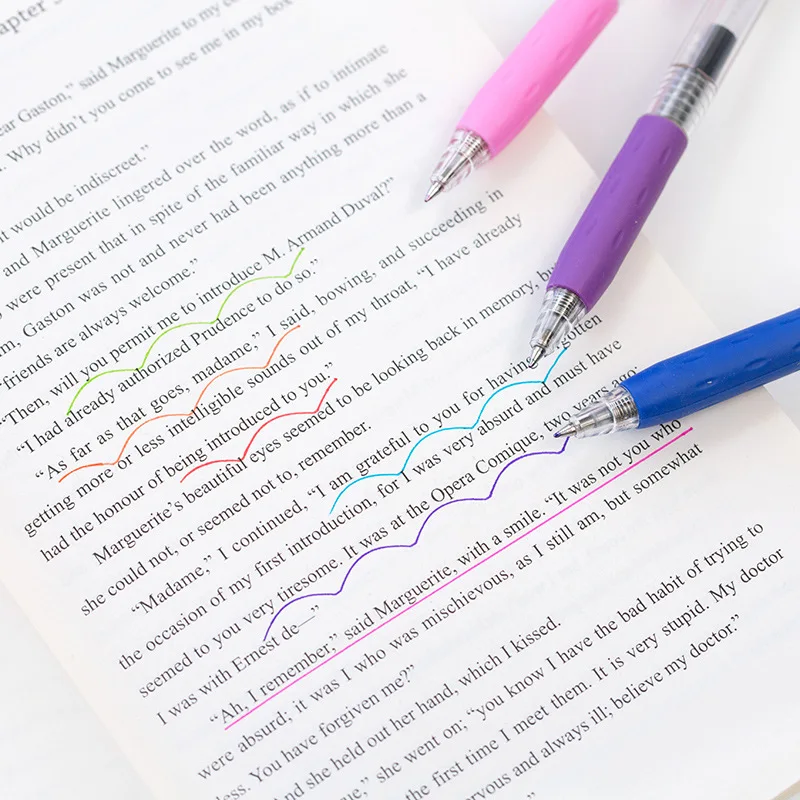 apter
ear Gaston,” said Marguerite to my
. Why didn’t you come to see me in my box
it would be indiscreet.”
and Marguerite lingered over the word, as if to intimate
were present that in spite of the familiar way in which she
m, Gaston was not and never had been anything more than a
“friends are always welcome.”
“Then, will you permit me to introduce M. Armand Duval?”
“I had already authorized Prudence to do so.”
“As far as that goes, madame,” I said, bowing, and succeeding in
getting more or less intelligible sounds out of my throat, “I have already
had the honour of being introduced to you.”
Marguerite’s beautiful eyes seemed to be looking back in memory,
she could not, or seemed not to, remember.
“Madame,” I continued, “I am grateful to you for having forgotten
the occasion of my first introduction, for I was very absurd and must have
seemed to you very tiresome. It was at the Opera Comique, two years ago;
I was with Ernest de—”
“Ah, I remember,” said Marguerite, with a smile. “It was not you who
were absurd; it was I who was mischievous, as I still am, but somewhat
less. You have forgiven me?”
And she held out her hand, which I kissed.
ue,” she went on; “you know I have the bad habit of trying to
the first time I meet them. It is very stupid. My doctor
rvous and always ill; believe my doctor.”